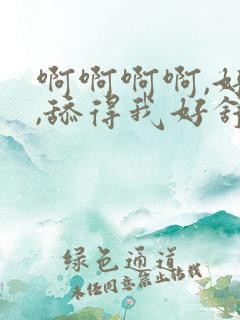 啊啊啊啊,好
,舔得我好舒
绿色通道
未经同意禁止转载